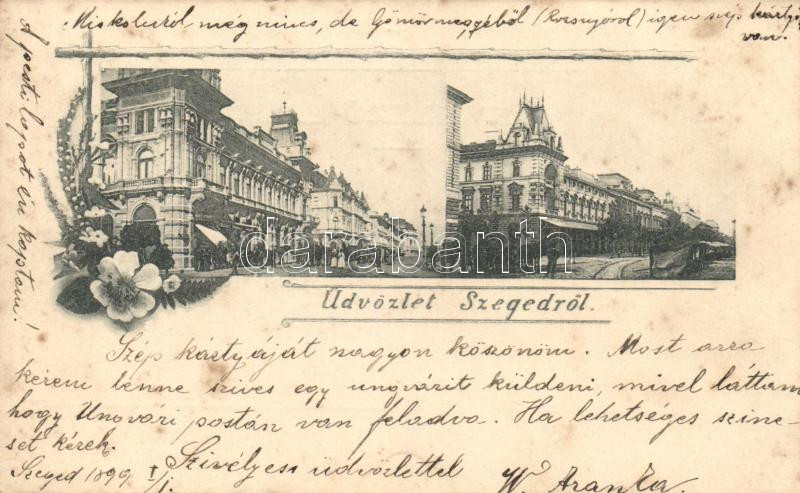 Miskolcról még nincs, de Gömörmegyéből (Rozsnyóról) igen szép kártyá
van.
A pesti lapot én kaptam!
darabanth
Üdvözlet Szegedről.
Szép kártyáját nagyon köszönöm. Most arra
kérem lenne szives egy ungvárit küldeni, mivel láttam
hogy Ungvári postán van feladva. Ha lehetséges szine-
set kérek.
Szeged 1899 I/1. Szivélyes üdvözlettel W. Aranka